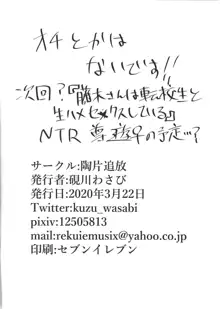 オチとかは
ないです!!
次回?『藤木さんは転校生と
生ハメセックスしている』
NTR
の予定…?
サークル:陶片追放
発行者:硯川わさび
発行日:2020年3月22日
Twitter:kuzu_wasabi
pixiv:12505813
mail:rekuiemusix@yahoo.co.jp
印刷:セブンイレブン